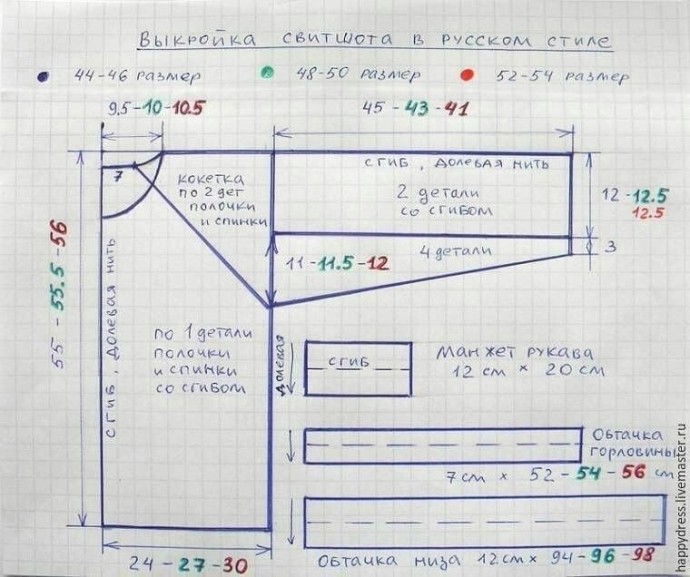 Выкройка свитшота в русском стиле
44-46 размер
48-50 размер
52-54 размер
9.5-10-10.5
45 - 43 - 41
7
кокетка
по 2 дет
полочки
и спинки
сгиб, долевая нить
2 детали
со сгибом
12 - 12.5
12.5
4 детали
3
11 - 11.5 - 12
55 - 55.5 - 56
сгиб, долевая нить
по 1 детали
полочки
и спинки
со сгибом
долевая
сгиб
Манжет рукава
12 см × 20 см
Обтачка
горловины
7 см × 52 - 54 - 56 см
24 - 27 - 30
Обтачка низа 12 см × 94 - 96 - 98
happydress.livemaster.ru